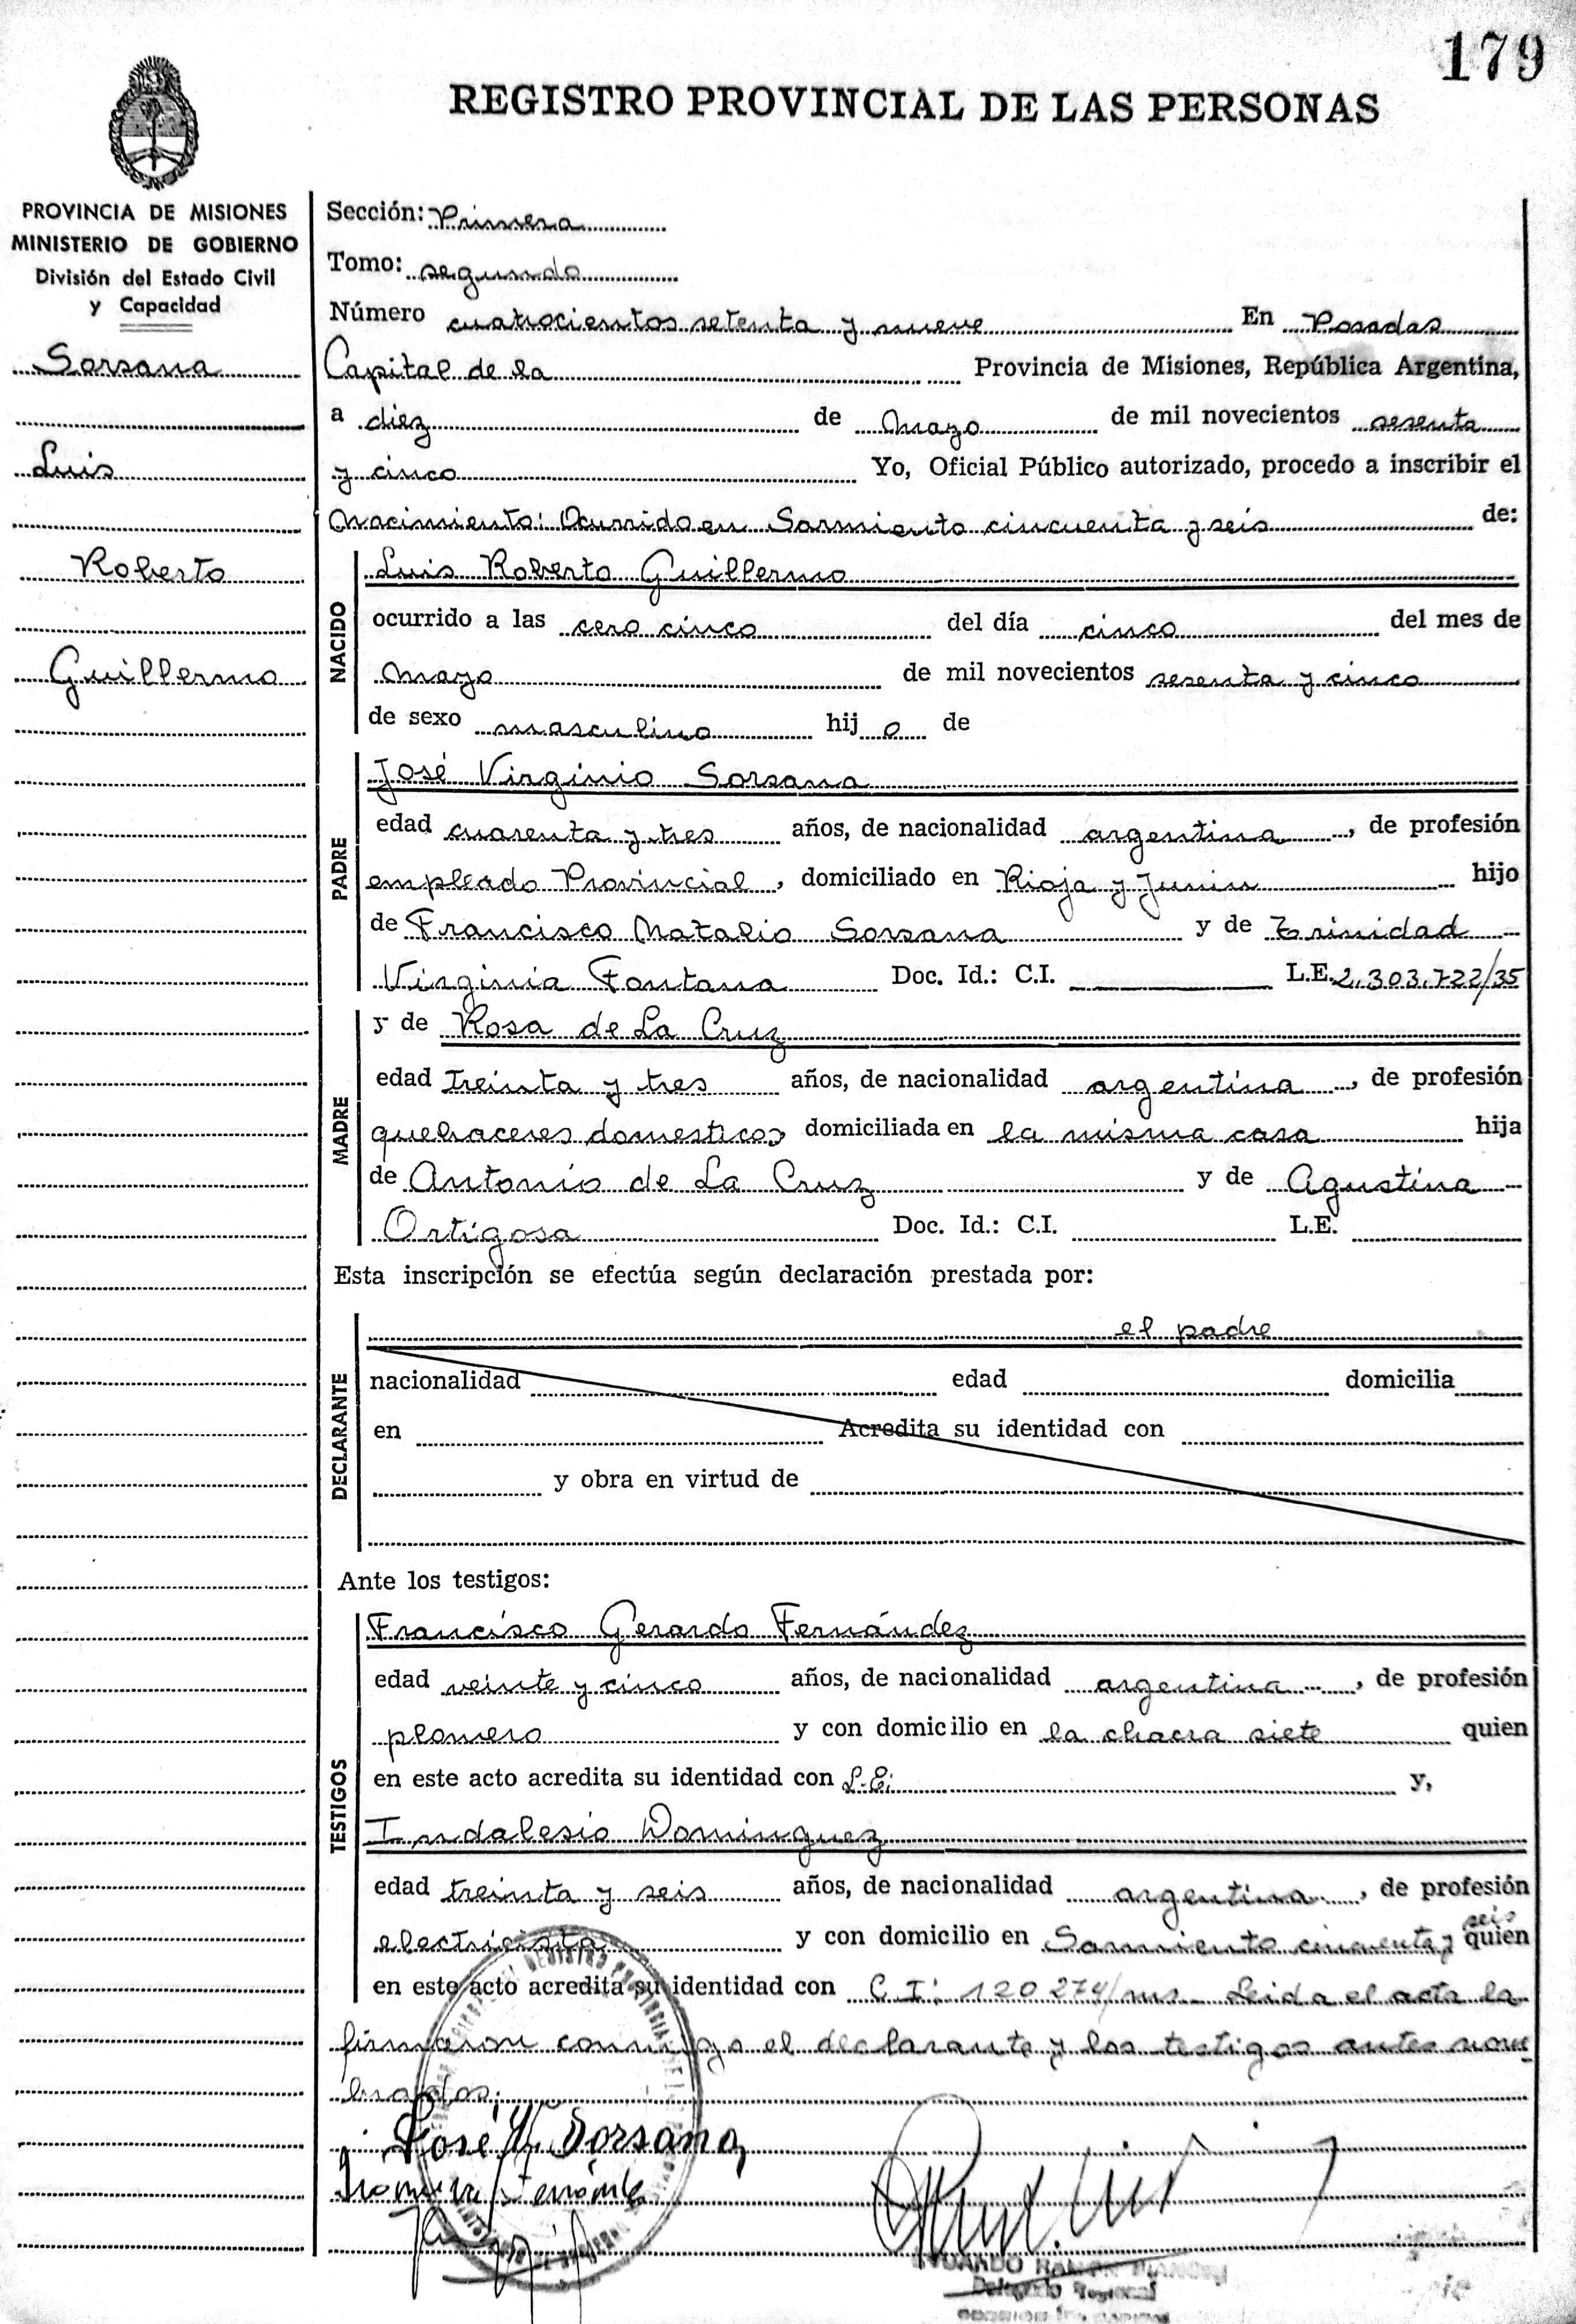 179
REGISTRO PROVINCIAL DE LAS PERSONAS
PROVINCIA DE MISIONES
MINISTERIO DE GOBIERNO
División del Estado Civil
y Capacidad
Sorsana
Luis
Roberto
Guillermo
Sección: Primera
Tomo: segundo
Número cuatrocientos setenta y nueve En Posadas
Capital de la Provincia de Misiones, República Argentina,
a diez de Mayo de mil novecientos sesenta
y cinco Yo, Oficial Público autorizado, procedo a inscribir el
Nacimiento: Ocurrido en Sarmiento cincuenta y seis de:
NACIDO
Luis Roberto Guillermo
ocurrido a las cero cinco del día cinco del mes de
Mayo de mil novecientos sesenta y cinco
de sexo masculino hij o de
PADRE
José Virginio Sorsana
edad cuarenta y tres años, de nacionalidad argentina, de profesión
empleado Provincial, domiciliado en Rioja y Junin hijo
de Francisco Natalio Sorsana y de Trinidad
Virginia Fontana Doc. Id.: C.I. L.E. 2.303.722/35
MADRE
y de Rosa de La Cruz
edad treinta y tres años, de nacionalidad argentina, de profesión
quehaceres domesticos domiciliada en la misma casa hija
de Antonio de La Cruz y de Agustina
Ortigosa Doc. Id.: C.I. L.E.
Esta inscripción se efectúa según declaración prestada por:
DECLARANTE
el padre
nacionalidad edad domicilia
en Acredita su identidad con
y obra en virtud de
Ante los testigos:
TESTIGOS
Francisco Gerardo Fernández
edad veinte y cinco años, de nacionalidad argentina, de profesión
plomero y con domicilio en la chacra siete quien
en este acto acredita su identidad con L.E. y,
Indalesio Dominguez
edad treinta y seis años, de nacionalidad argentina, de profesión
electricista y con domicilio en Sarmiento cincuenta y seis quien
en este acto acredita su identidad con C.I: 120274/ms. Leida el acta la
firmaron conmigo el declarante y los testigos antes nom
brados.
José V. Sorsana
Delegado Regional